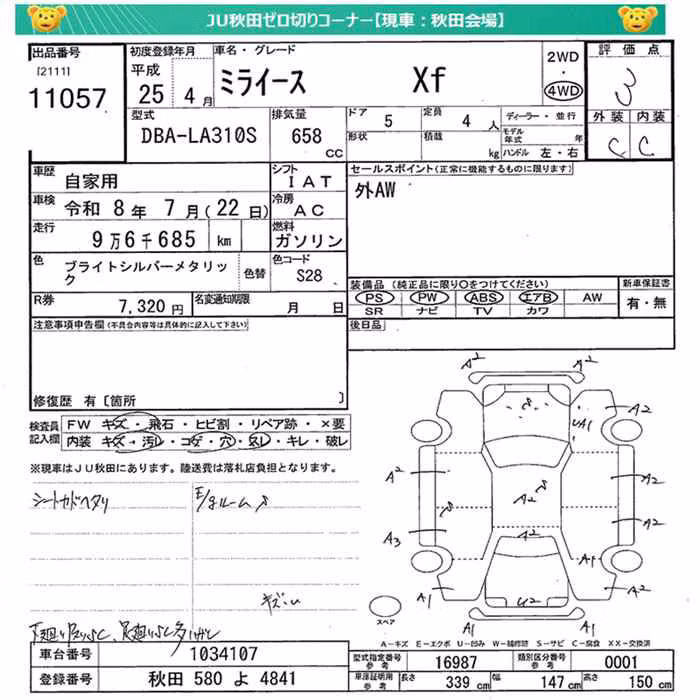 JU秋田ゼロ切りコーナー【現車：秋田会場】
出品番号
[2111]
11057
初度登録年月
平成
25 4月
車名・グレード
ミライース Xf
2WD
・
4WD
評価点
3
外装 内装
C C
型式
DBA-LA310S
排気量
658
CC
ドア
5
定員
4人
形状
積載
kg
ディーラー・並行
モデル年式 年
ハンドル 左・右
車歴
自家用
シフト
IAT
車検
令和 8年 7月(22日)
冷房
AC
走行
9万6千685 km
燃料
ガソリン
色
ブライトシルバーメタリック
色替
色コード
S28
セールスポイント(正常に機能するものに限ります)
外AW
装備品 (純正品に限り○をつけてください)
PS PW ABS エアB AW
SR ナビ TV カワ
新車保証書
有・無
R券
7,320円
名変通知期限
月 日
後日品
注意事項申告欄(不具合内容等は具体的に記入して下さい)
修復歴 有[箇所 ]
検査員記入欄
FW キズ・飛石・ヒビ割・リペア跡・×要
内装 キズ・汚レ・コゲ・穴・スレ・キレ・破レ
※現車はJU秋田にあります。陸送費は落札店負担となります。
シートカドヘタリ
E/gルーム
キズ
A2 A2
A2
UA1
A2 A2
A2
A2
A3 A2
A1
A2
A1 U2
A1 A1
スペア
A－キズ E－エクボ U－凹み W－補修跡 S－サビ C－腐食 XX－交換済
車台番号
1034107
登録番号
秋田 580 よ 4841
型式指定番号
参考
16987
類別区分番号
参考
0001
車庫証明用
参考
長さ 339 cm 幅 147 cm 高さ 150 cm